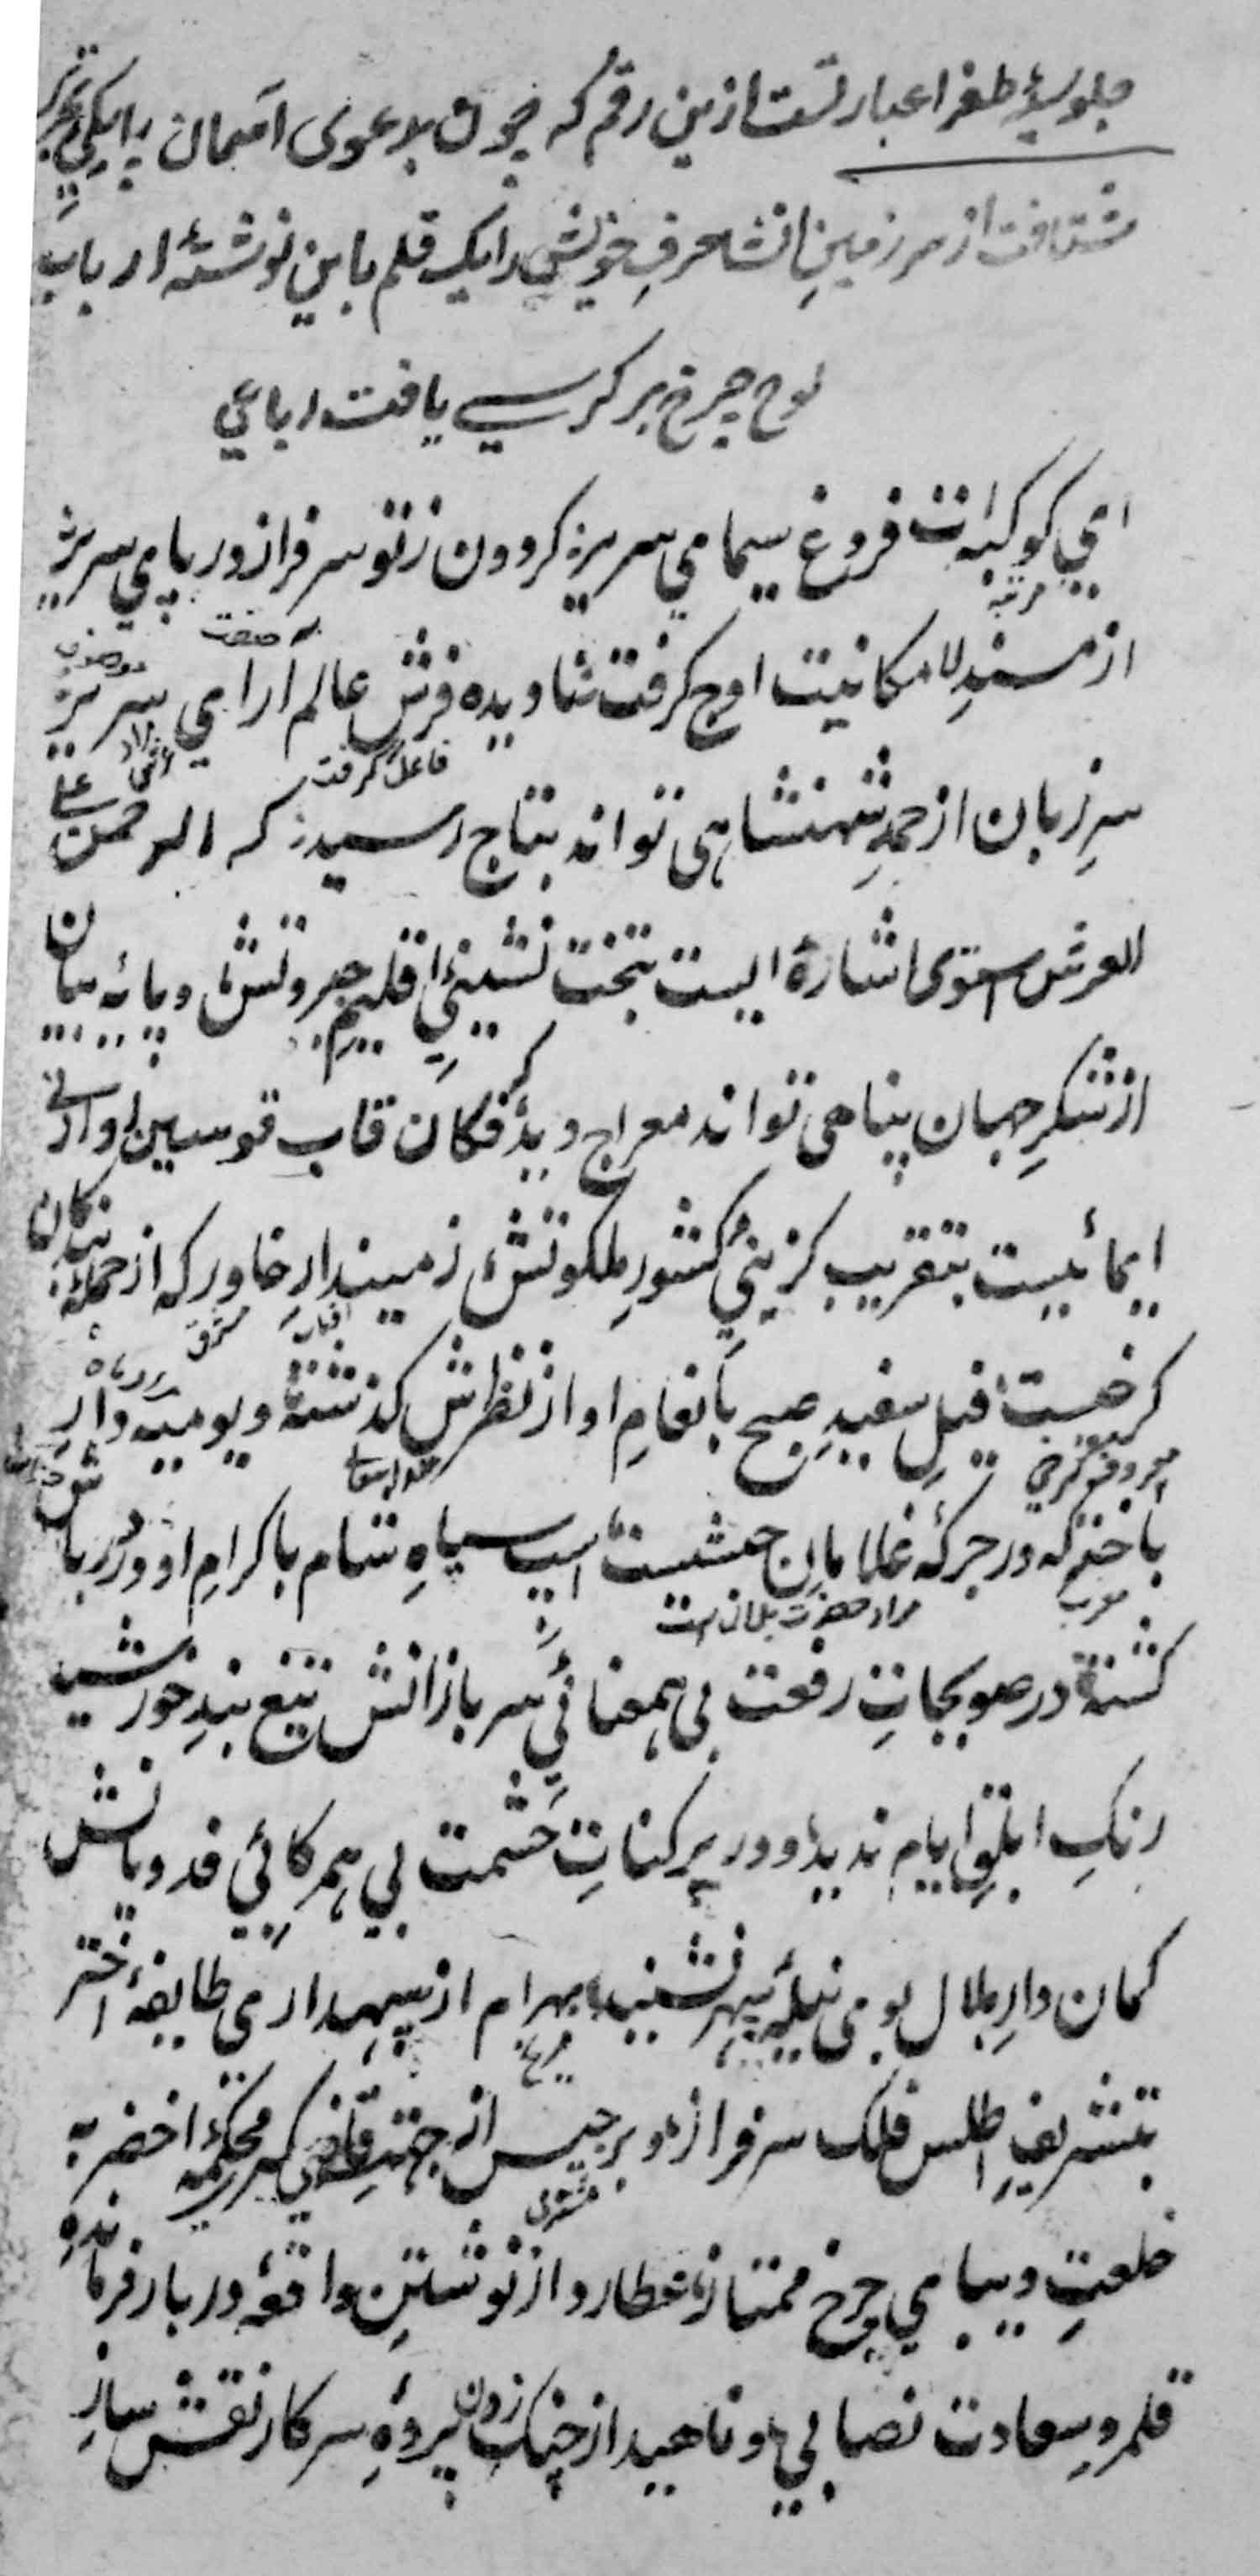 جلوسیهٔ طغرا عبارتست ازین رقم که چون بدعوی آسمان پایکی
شتافت از سرزمینِ انشا حرفِ خویش را یک قلم باین نوشتهٔ ارباب
لوح چرخ بر کرسی یافت رباعی
ای کوکبه‌ات فروغ سیمای سریر کردون ز تو سرفراز در پای سریر
مرتبه
صفت
موصوف
از مسندِ لامکانیت اوج کرفت نادیده فرش عالم آرای سریر
فاعل کرفت
سرِ زبان از حمدِ شهنشاهی تواند بتاج رسید که الرحمن علی
العرش استوی اشاره ایست بتخت نشینیِ اقلیمِ جبروتش و پایه بیان
از شکرِ جهان پناهی تواند معراج دید که فکان قاب قوسین او ادنی
ایمائیست بتقریب کزینیِ کشورِ ملکوتش زمیندارِ خاور که از جملهٔ بندکان
مشرق
آفتاب
کرخیست فیلِ سفیدِ صبح بانعامِ او از نظرش کذشته و یومیه دارِ
معروف کرخی
باختر که در جرکهٔ غلامانِ حبشیست اسپ سیاهِ شام باکرامِ او در زیر پاش
مغرب
مراد حضرت بلال است
کشته در صوبجاتِ رفعت بی همعنانیِ سربازانش تیغ بندِ خورشید
رنکِ ابلقِ ایام ندیده و در پرکناتِ حشمت بی همرکابیِ فدویانش
کمان دارِ هلال بوی نیلهٔ سپهر نشنیده بهرام از سپهداری طایفهٔ اختر
مریخ
بتشریفِ اطلس فلک سرفراز و برجیس از جهتِ قاضی کریِ محکمهٔ اخضر به
مشتری
خلعتِ دیبای چرخ ممتاز عطارد از نوشتنِ واقعهٔ دربار فرماندهِ
قلمروِ سعادت نصابی و ناهید از چنک زدنِ پردهٔ سرکار نقش سازِ